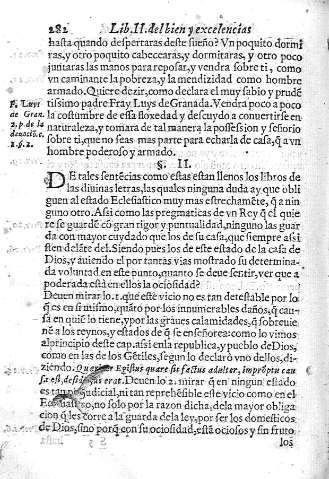 282 Lib. II. del bien y excelencias
hasta quando despertaras deste sueño? Vn poquito dormi
ras, y otro poquito cabecearas, y dormitaras, y otro poco
juntaras las manos para reposar, y vendra sobre ti, como
vn caminante la pobreza, y la mendizidad como hombre
armado. Quiere dezir, como declara el muy sabio y prudē
tissimo padre Fray Luys de Granada. Vendra poco a poco
la costumbre de essa floxedad y descuydo a conuertirse en
naturaleza, y tomara de tal manera la possession y señorio
sobre ti, que no seas mas parte para echarla de casa, q̃ a vn
hombre poderoso y armado.
F. Luys
de Gran.
2. p. de la
deuociō. c.
2. §. 2.
§. II.
DE tales sentēcias como estas estan llenos los libros de
las diuinas letras, las quales ninguna duda ay que obli
guen al estado Eclesiastico muy mas estrechamēte, q̃ a nin
guno otro. Assi como las pregmaticas de vn Rey q̃ el quie
re se guardē cō gran rigor y puntualidad, ninguno las guar
da con mayor cuydado que los de su casa, que siempre assi
sten delāte del. Siendo pues los de este estado de la casa de
Dios, y auiendo el por tantas vias mostrado su determina-
da voluntad en este punto, quanto se deue sentir, ver que a
poderada està en ellos la ociosidad?
Deuen mirar lo. 1. que este vicio no es tan detestable por lo
q̃ es en si mismo, quāto por los innumerables daños, q̃ cau-
sa en quiē lo tiene, y por las graues calamidades, q̃ sobreuie
nē a los reynos, y estados de q̃ se enseñorea: como lo vimos
al principio deste cap. assi en la republica, y pueblo de Dios,
como en las de los Gētiles, segun lo declarò vno dellos, di-
ziendo. Quæritur Egistus quare sit factus adulter, improptu cau
sa est, desidiosus erat. Deuen lo 2. mirar q̃ en ningun estado
es tan perjudicial, ni tan reprehēsible este vicio como en el
Ecclesiastico, no solo por la razon dicha, de la mayor obliga
cion q̃ les corre a la guarda de la ley, por ser los domesticos
de Dios, sino porq̃ con su ociosidad, està ociosos y sin fruto
los